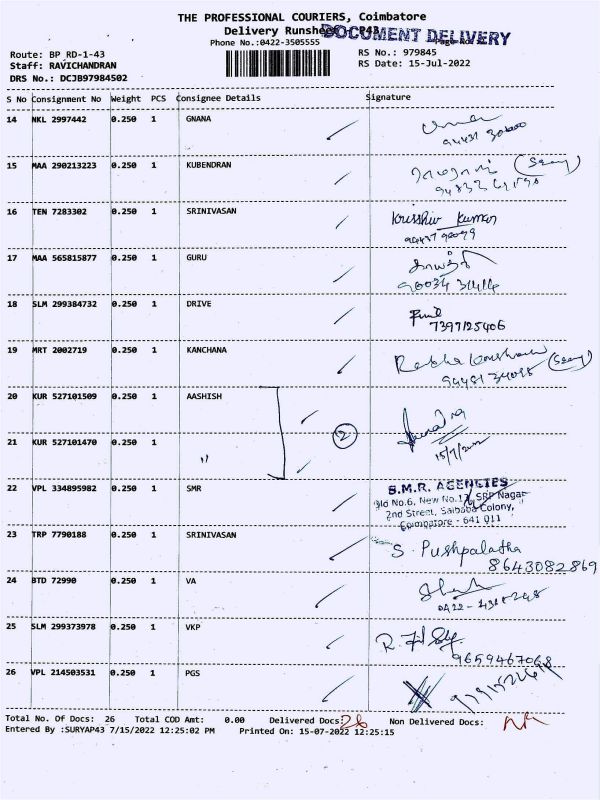 THE PROFESSIONAL COURIERS, Coimbatore
Delivery Runsheet
DOCUMENT DELIVERY
Phone No.:0422-3505555
Route: BP RD-1-43
RS No.: 979845
Staff: RAVICHANDRAN
RS Date: 15-Jul-2022
DRS No.: DCJB97984502
S No Consignment No Weight PCS Consignee Details Signature
14 NKL 2997442 0.250 1 GNANA
15 MAA 290213223 0.250 1 KUBENDRAN
16 TEN 7283302 0.250 1 SRINIVASAN Kumar
17 MAA 565815877 0.250 1 GURU
90034 31414
18 SLM 299384732 0.250 1 DRIVE
7397125406
19 MRT 2002719 0.250 1 KANCHANA
20 KUR 527101509 0.250 1 AASHISH
21 KUR 527101470 0.250 1 " 2
15/7/2022
22 VPL 334895982 0.250 1 SMR S.M.R. AGENCIES
Old No.6, New No.17, SRP Nagar
2nd Street, Saibaba Colony,
Coimbatore - 641 011
23 TRP 7790188 0.250 1 SRINIVASAN S. Pushpalatha
8643082869
24 BTD 72990 0.250 1 VA
25 SLM 299373978 0.250 1 VKP
9659467068
26 VPL 214503531 0.250 1 PGS
Total No. Of Docs: 26 Total COD Amt: 0.00 Delivered Docs: 26 Non Delivered Docs:
Entered By :SURYAP43 7/15/2022 12:25:02 PM Printed On: 15-07-2022 12:25:15